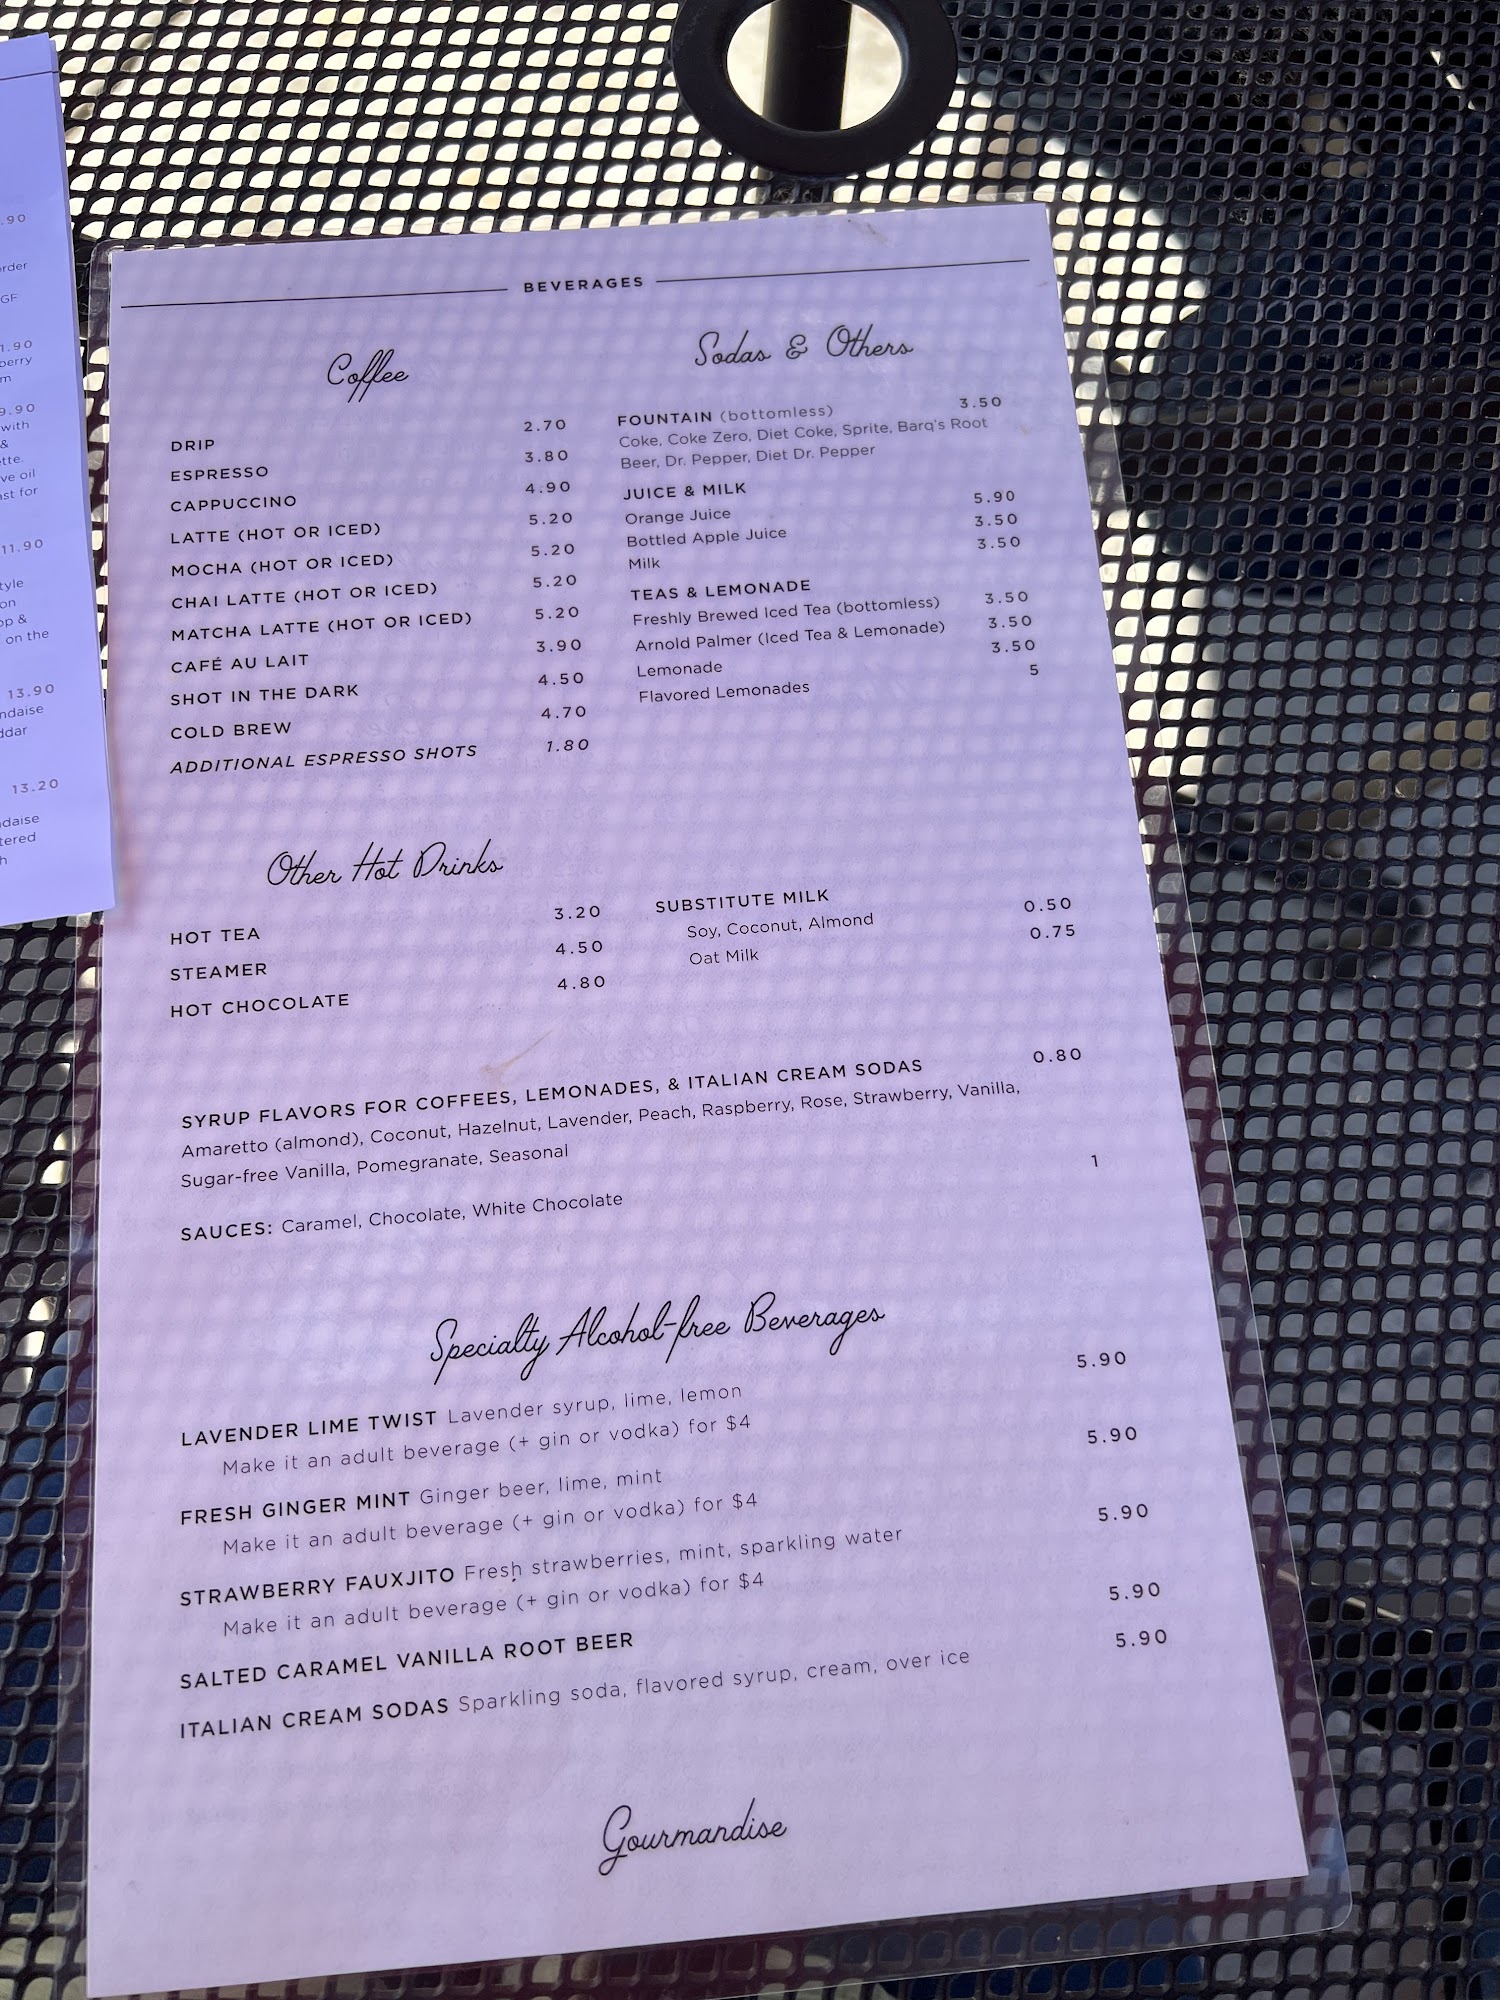 .90
rder
GF
1.90
berry
m
9.90
with
&
tte.
ve oil
ast for
11.90
tyle
on
op &
on the
13.90
ndaise
ddar
13.20
daise
tered
h
BEVERAGES
Coffee
DRIP 2.70
ESPRESSO 3.80
CAPPUCCINO 4.90
LATTE (HOT OR ICED) 5.20
MOCHA (HOT OR ICED) 5.20
CHAI LATTE (HOT OR ICED) 5.20
MATCHA LATTE (HOT OR ICED) 5.20
CAFÉ AU LAIT 3.90
SHOT IN THE DARK 4.50
COLD BREW 4.70
ADDITIONAL ESPRESSO SHOTS 1.80
Sodas & Others
FOUNTAIN (bottomless) 3.50
Coke, Coke Zero, Diet Coke, Sprite, Barq's Root
Beer, Dr. Pepper, Diet Dr. Pepper
JUICE & MILK
Orange Juice 5.90
Bottled Apple Juice 3.50
Milk 3.50
TEAS & LEMONADE
Freshly Brewed Iced Tea (bottomless) 3.50
Arnold Palmer (Iced Tea & Lemonade) 3.50
Lemonade 3.50
Flavored Lemonades 5
Other Hot Drinks
HOT TEA 3.20
STEAMER 4.50
HOT CHOCOLATE 4.80
SUBSTITUTE MILK
Soy, Coconut, Almond 0.50
Oat Milk 0.75
SYRUP FLAVORS FOR COFFEES, LEMONADES, & ITALIAN CREAM SODAS 0.80
Amaretto (almond), Coconut, Hazelnut, Lavender, Peach, Raspberry, Rose, Strawberry, Vanilla,
Sugar-free Vanilla, Pomegranate, Seasonal
SAUCES: Caramel, Chocolate, White Chocolate 1
Specialty Alcohol-free Beverages
LAVENDER LIME TWIST Lavender syrup, lime, lemon 5.90
Make it an adult beverage (+ gin or vodka) for $4
FRESH GINGER MINT Ginger beer, lime, mint 5.90
Make it an adult beverage (+ gin or vodka) for $4
STRAWBERRY FAUXJITO Fresh strawberries, mint, sparkling water 5.90
Make it an adult beverage (+ gin or vodka) for $4
SALTED CARAMEL VANILLA ROOT BEER 5.90
ITALIAN CREAM SODAS Sparkling soda, flavored syrup, cream, over ice 5.90
Gourmandise